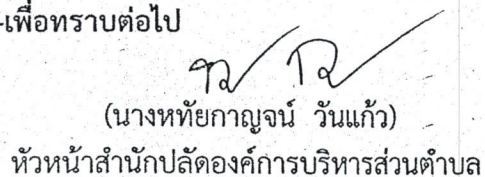 -เพื่อทราบต่อไป
(นางหทัยกาญจน์ วันแก้ว)
หัวหน้าสำนักปลัดองค์การบริหารส่วนตำบล